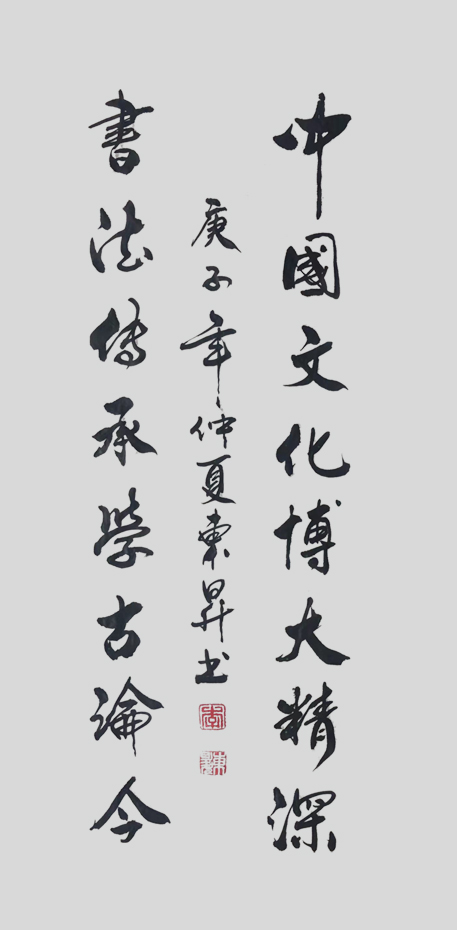 中國文化博大精深
書法傳承學古論今
庚子年仲夏東昇书